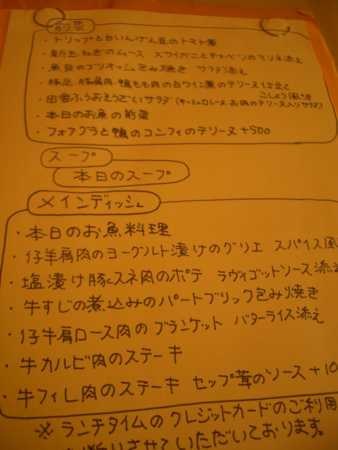 前菜
・トリップと白いんげん豆のトマト煮
・新玉ねぎのムース
サラダ添え
・豚足 豚肩肉 鴨もも肉の白ワイン煮のテリーヌ
こしょう風味
・田舎ふうおそうざいサラダ
・本日のお魚の前菜
・フォアグラと鴨のコンフィのテリーヌ +500
スープ
本日のスープ
メインディッシュ
・本日のお魚料理
・仔羊肩肉のヨーグルト漬けのグリエ スパイス風
・塩漬け豚スネ肉のポテ ラヴィゴットソース添え
・牛すじの煮込みのパートブリック包み焼き
・仔牛肩ロース肉のブランケット バターライス添え
・牛カルビ肉のステーキ
・牛フィレ肉のステーキ セップ茸のソース +10
※ ランチタイムのクレジットカードのご利用
させていただいております。